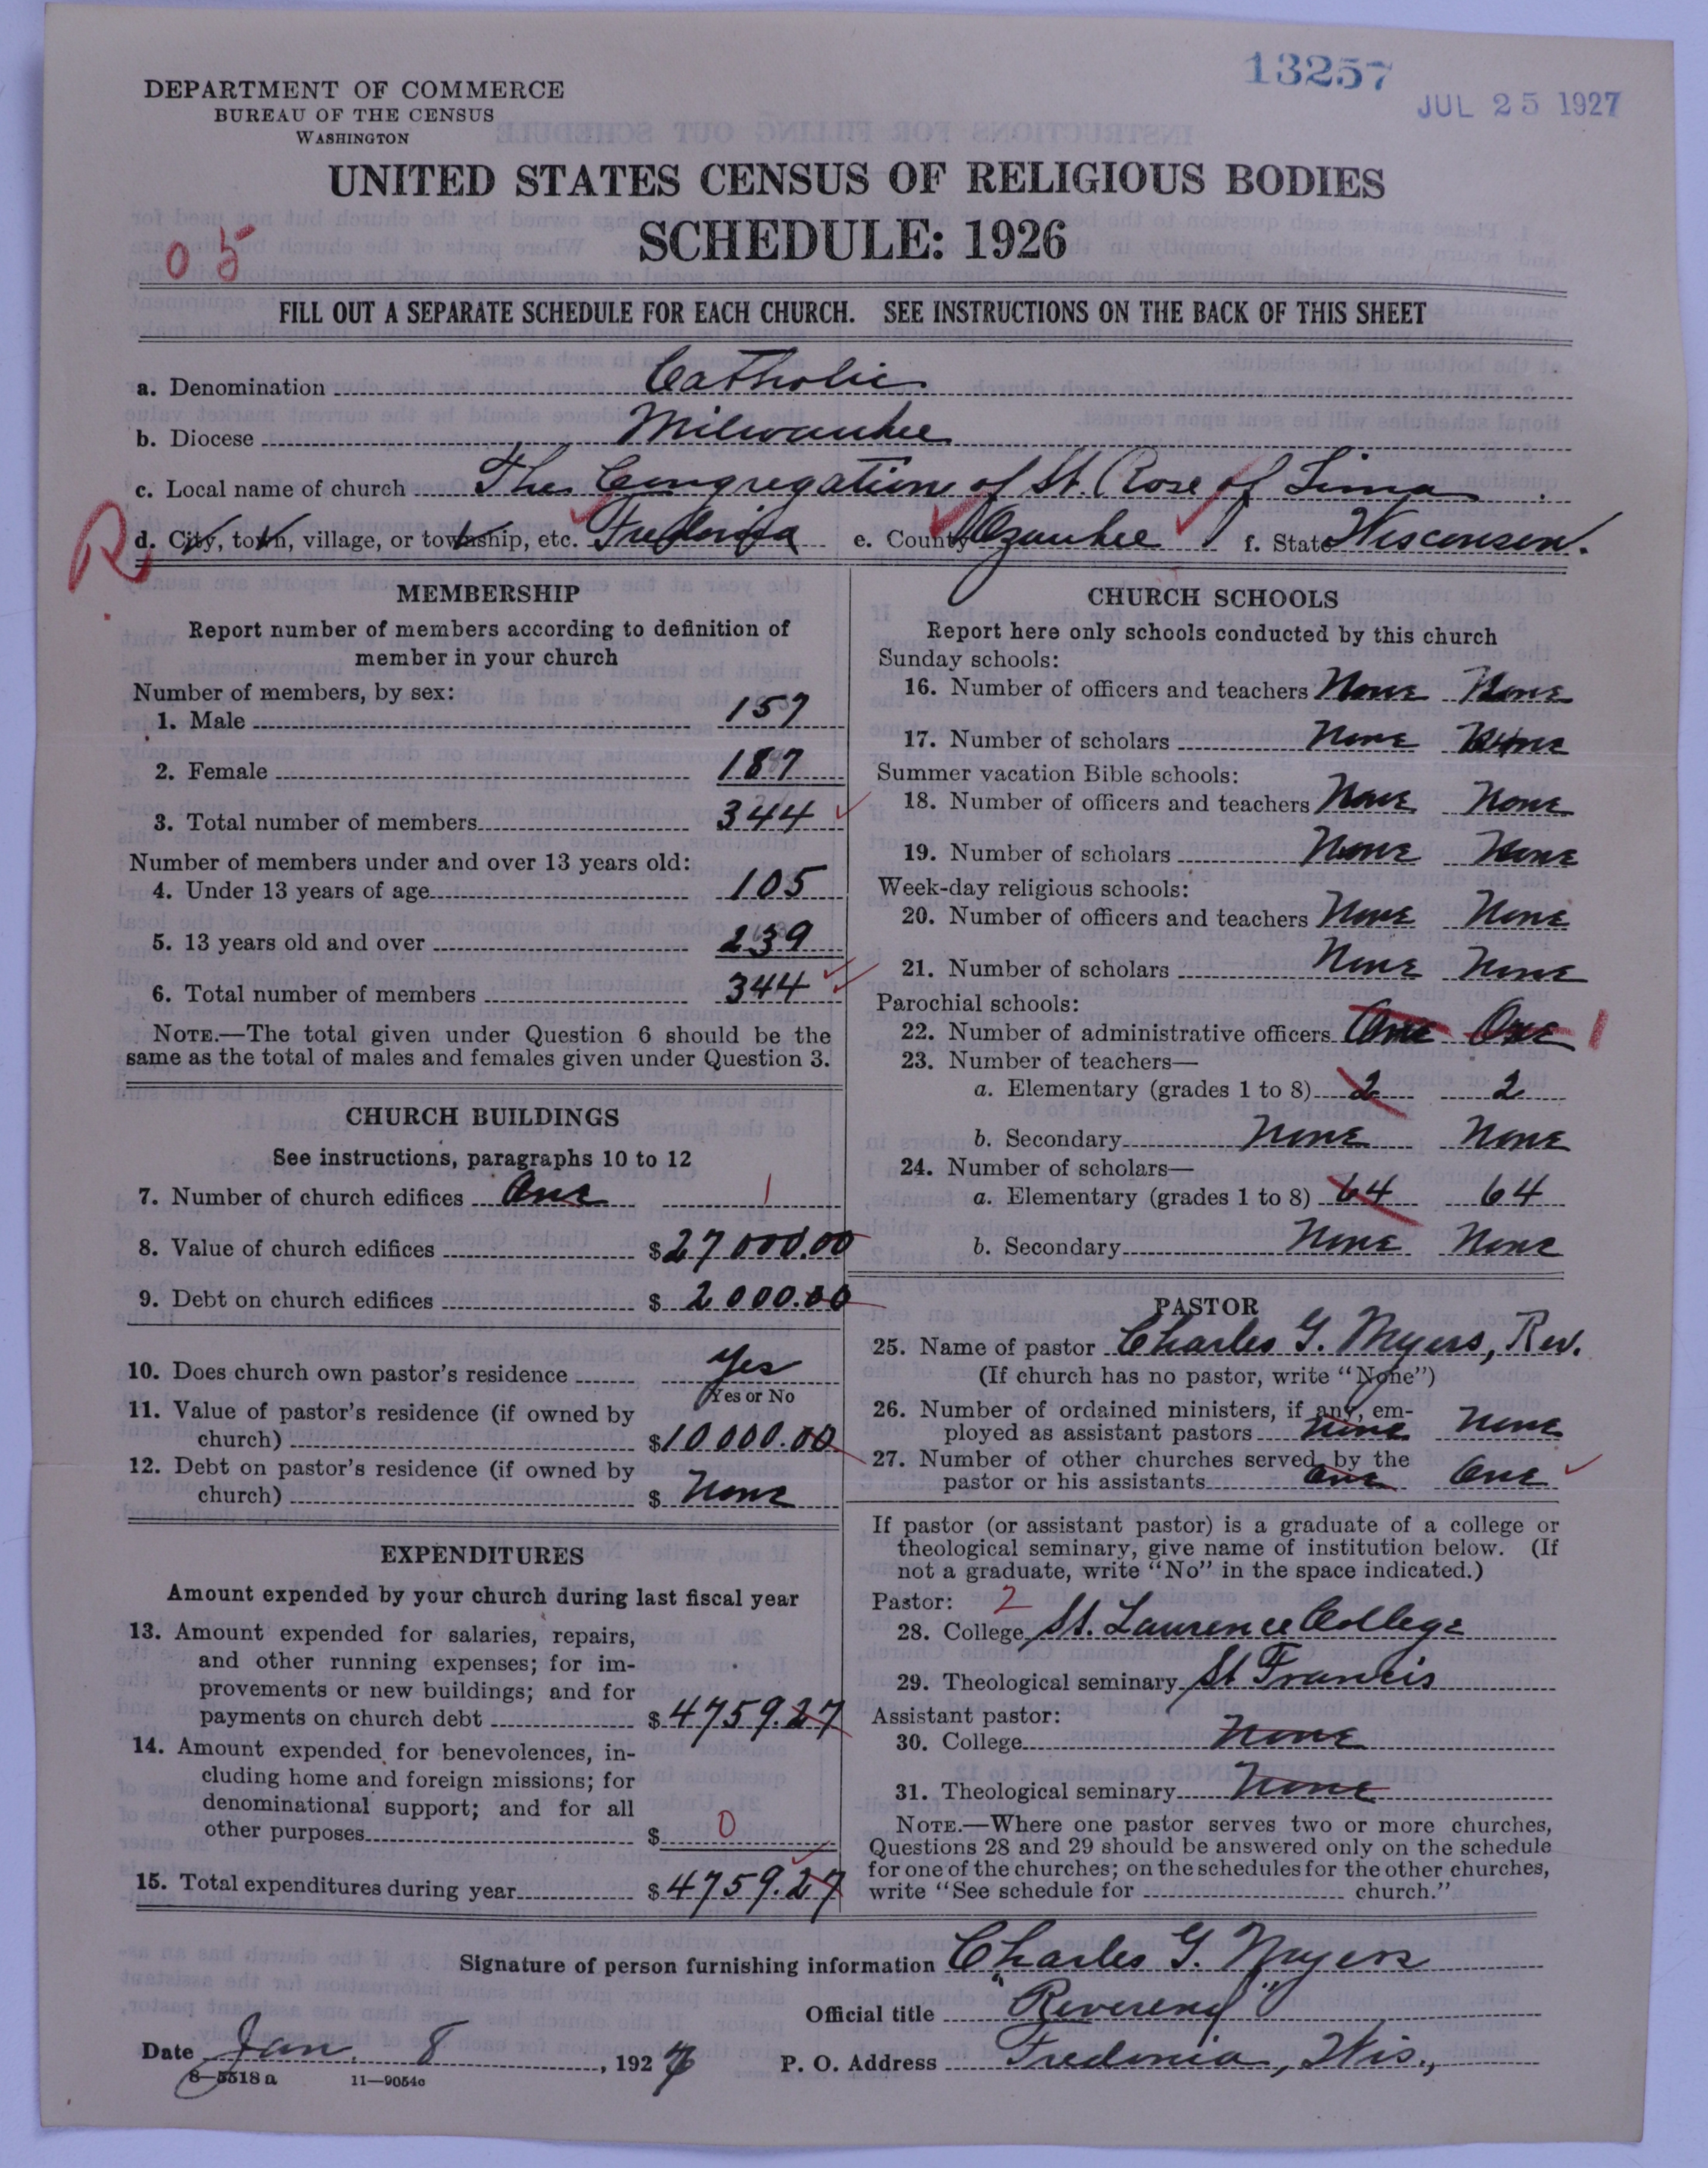 13257
JUL 25 1927
DEPARTMENT OF COMMERCE
BUREAU OF THE CENSUS
WASHINGTON
UNITED STATES CENSUS OF RELIGIOUS BODIES
SCHEDULE: 1926
05
FILL OUT A SEPARATE SCHEDULE FOR EACH CHURCH. SEE INSTRUCTIONS ON THE BACK OF THIS SHEET
a. Denomination Catholic
b. Diocese Milwaukee
c. Local name of church The Congregation of St. Rose of Lima
R
d. City, town, village, or township, etc. Fredonia e. County Ozaukee f. State Wisconsin.
MEMBERSHIP
Report number of members according to definition of
member in your church
Number of members, by sex:
1. Male 157
2. Female 187
3. Total number of members 344
Number of members under and over 13 years old:
4. Under 13 years of age 105
5. 13 years old and over 239
6. Total number of members 344
NOTE.—The total given under Question 6 should be the
same as the total of males and females given under Question 3.
CHURCH BUILDINGS
See instructions, paragraphs 10 to 12
7. Number of church edifices One 1
8. Value of church edifices $27000.00
9. Debt on church edifices $2000.00
10. Does church own pastor's residence Yes
Yes or No
11. Value of pastor's residence (if owned by
church) $10000.00
12. Debt on pastor's residence (if owned by
church) $ None
EXPENDITURES
Amount expended by your church during last fiscal year
13. Amount expended for salaries, repairs,
and other running expenses; for im-
provements or new buildings; and for
payments on church debt $4759.27
14. Amount expended for benevolences, in-
cluding home and foreign missions; for
denominational support; and for all
other purposes $ 0
15. Total expenditures during year $4759.27
CHURCH SCHOOLS
Report here only schools conducted by this church
Sunday schools:
16. Number of officers and teachers None None
17. Number of scholars None None
Summer vacation Bible schools:
18. Number of officers and teachers None None
19. Number of scholars None None
Week-day religious schools:
20. Number of officers and teachers None None
21. Number of scholars None None
Parochial schools:
22. Number of administrative officers One One 1
23. Number of teachers—
a. Elementary (grades 1 to 8) 2 2
b. Secondary None None
24. Number of scholars—
a. Elementary (grades 1 to 8) 64 64
b. Secondary None None
PASTOR
25. Name of pastor Charles G. Myers, Rev.
(If church has no pastor, write "None")
26. Number of ordained ministers, if any, em-
ployed as assistant pastors None None
27. Number of other churches served by the
pastor or his assistants One One
If pastor (or assistant pastor) is a graduate of a college or
theological seminary, give name of institution below. (If
not a graduate, write "No" in the space indicated.)
Pastor: 2
28. College St. Laurence College
29. Theological seminary St Francis
Assistant pastor:
30. College None
31. Theological seminary None
NOTE.—Where one pastor serves two or more churches,
Questions 28 and 29 should be answered only on the schedule
for one of the churches; on the schedules for the other churches,
write "See schedule for church."
Signature of person furnishing information Charles G. Myers
Official title "Reverend"
Date Jan. 8, 192
P. O. Address Fredonia, Wis.,
8—5518 a 11—9054c